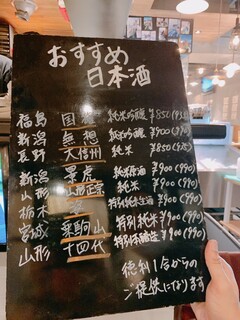 おすすめ
日本酒
福島 国 純米吟醸 ¥850(935)
新潟 無想 純米吟醸 ¥900(990)
長野 大信州 純米 ¥850(935)
新潟 景虎 純米原酒 ¥900(990)
山形 山形正宗 純米 ¥900(990)
栃木 特別純米生酒 ¥900(990)
宮城 栗駒山 特別純米 ¥900(990)
山形 十四代 特別本醸造 ¥900(990)
徳利1合からの
ご提供になります